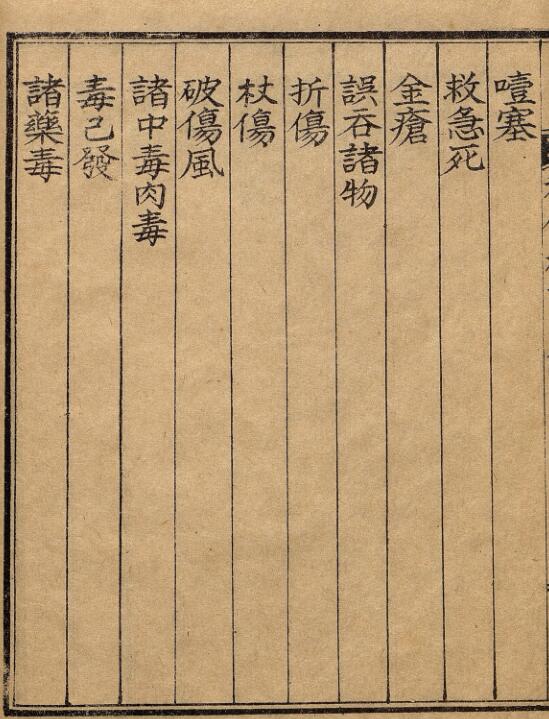 噎塞
救急死
金瘡
誤吞諸物
折傷
杖傷
破傷風
諸中毒肉毒
毒已發
諸藥毒